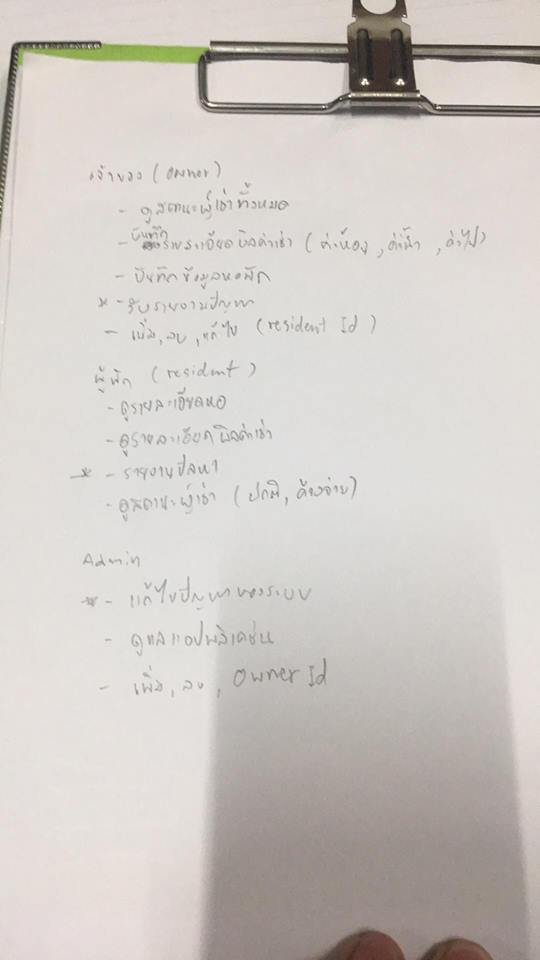 เจ้าของ (owner)
- ดูสถานะผู้เช่าทั้งหมด
- บันทึกรายละเอียดบิลค่าเช่า (ค่าห้อง, ค่าน้ำ, ค่าไฟ)
- บันทึกข้อมูลหอพัก
* - รับรายงานปัญหา
- เพิ่ม, ลบ, แก้ไข (resident Id)
ผู้พัก (resident)
- ดูรายละเอียดหอ
- ดูรายละเอียดบิลค่าเช่า
* - รายงานปัญหา
- ดูสถานะผู้เช่า (ปกติ, ค้างจ่าย)
Admin
* - แก้ไขปัญหาของระบบ
- ดูแลแอปพลิเคชั่น
- เพิ่ม, ลบ, Owner Id